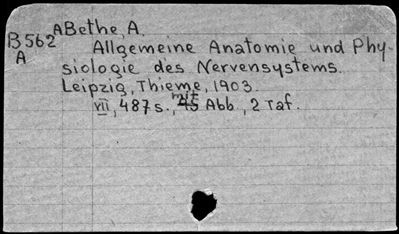 ABethe, A.
B562
A
Allgemeine Anatomie und Phy-
siologie des Nervensystems.
Leipzig, Thieme, 1903.
VII, 487 s., mit 95 Abb, 2 Taf.